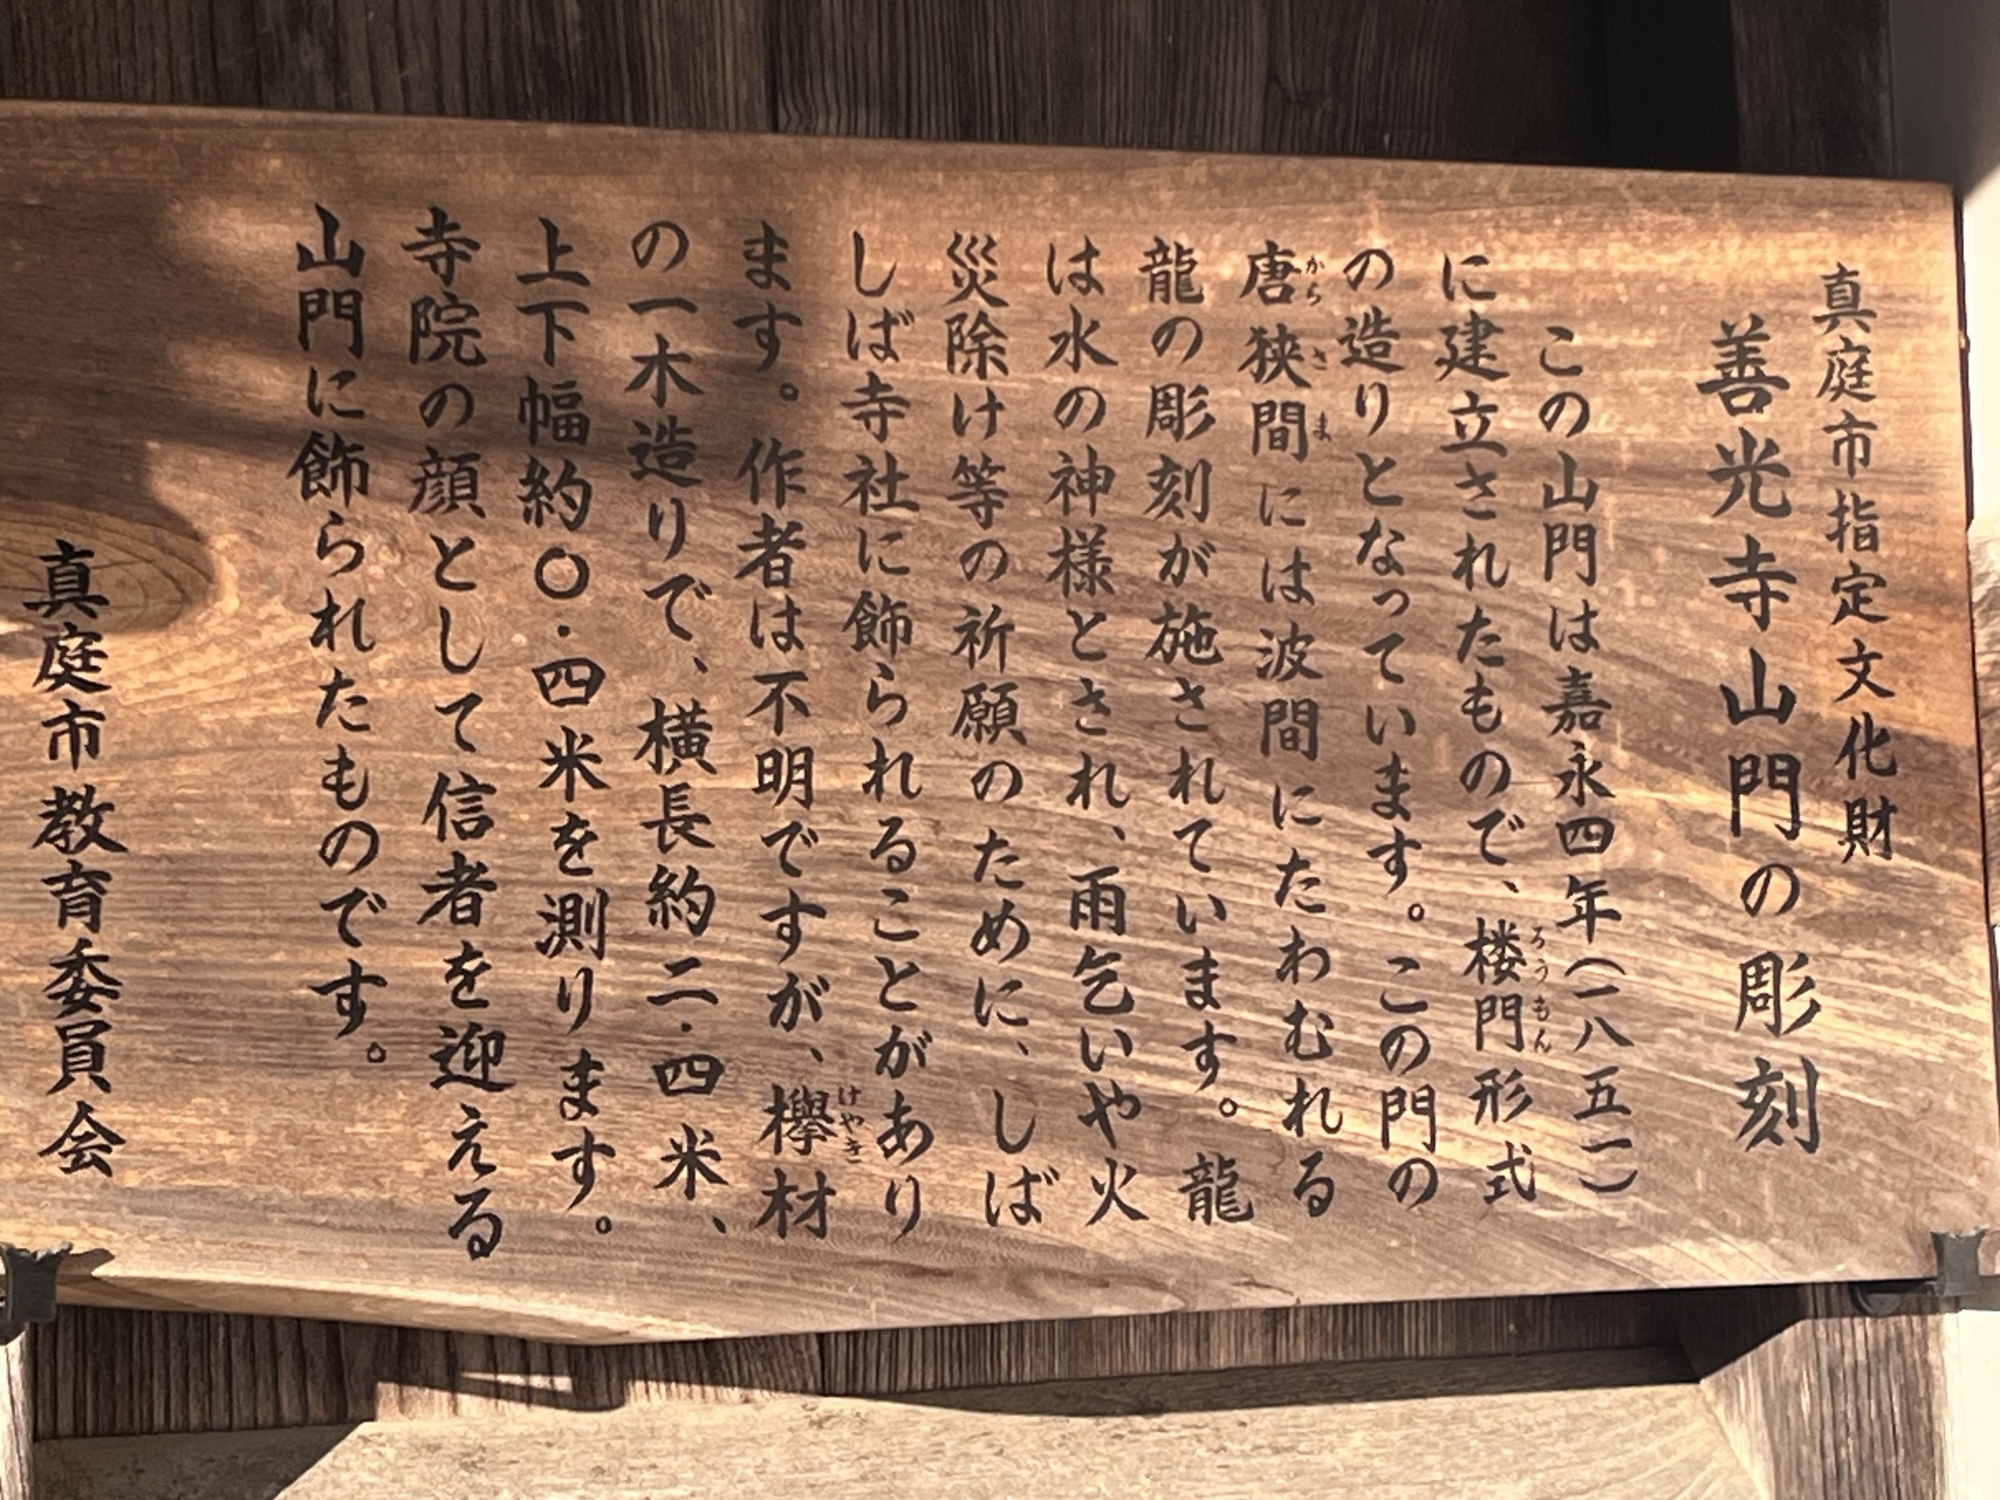 真庭市指定文化財
善光寺山門の彫刻
この山門は嘉永四年(一八五一)
に建立されたもので、楼門形式
ろうもん
の造りとなっています。この門の
唐狭間には波間にたわむれる
からさま
龍の彫刻が施されています。龍
は水の神様とされ、雨乞いや火
災除け等の祈願のために、しば
しば寺社に飾られることがあり
ます。作者は不明ですが、欅材
けやき
の一木造りで、横長約二.四米、
上下幅約〇.四米を測ります。
寺院の顔として信者を迎える
山門に飾られたものです。
真庭市教育委員会